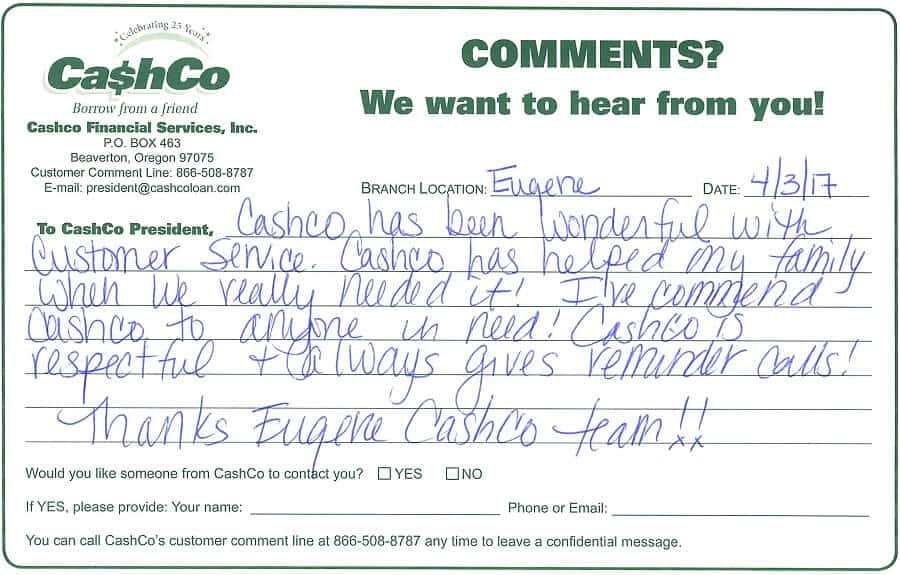 Celebrating 25 Years
Ca$hCo
Borrow from a friend
Cashco Financial Services, Inc.
P.O. BOX 463
Beaverton, Oregon 97075
Customer Comment Line: 866-508-8787
E-mail: president@cashcoloan.com
COMMENTS?
We want to hear from you!
BRANCH LOCATION: Eugene DATE: 4/3/17
To CashCo President, Cashco has been wonderful with
Customer Service. Cashco has helped my family
when we really needed it! I've commend
Cashco to anyone in need! Cashco is
respectful + always gives reminder calls!
Thanks Eugene CashCo team!!
Would you like someone from CashCo to contact you? ☐ YES ☐ NO
If YES, please provide: Your name: Phone or Email:
You can call CashCo's customer comment line at 866-508-8787 any time to leave a confidential message.